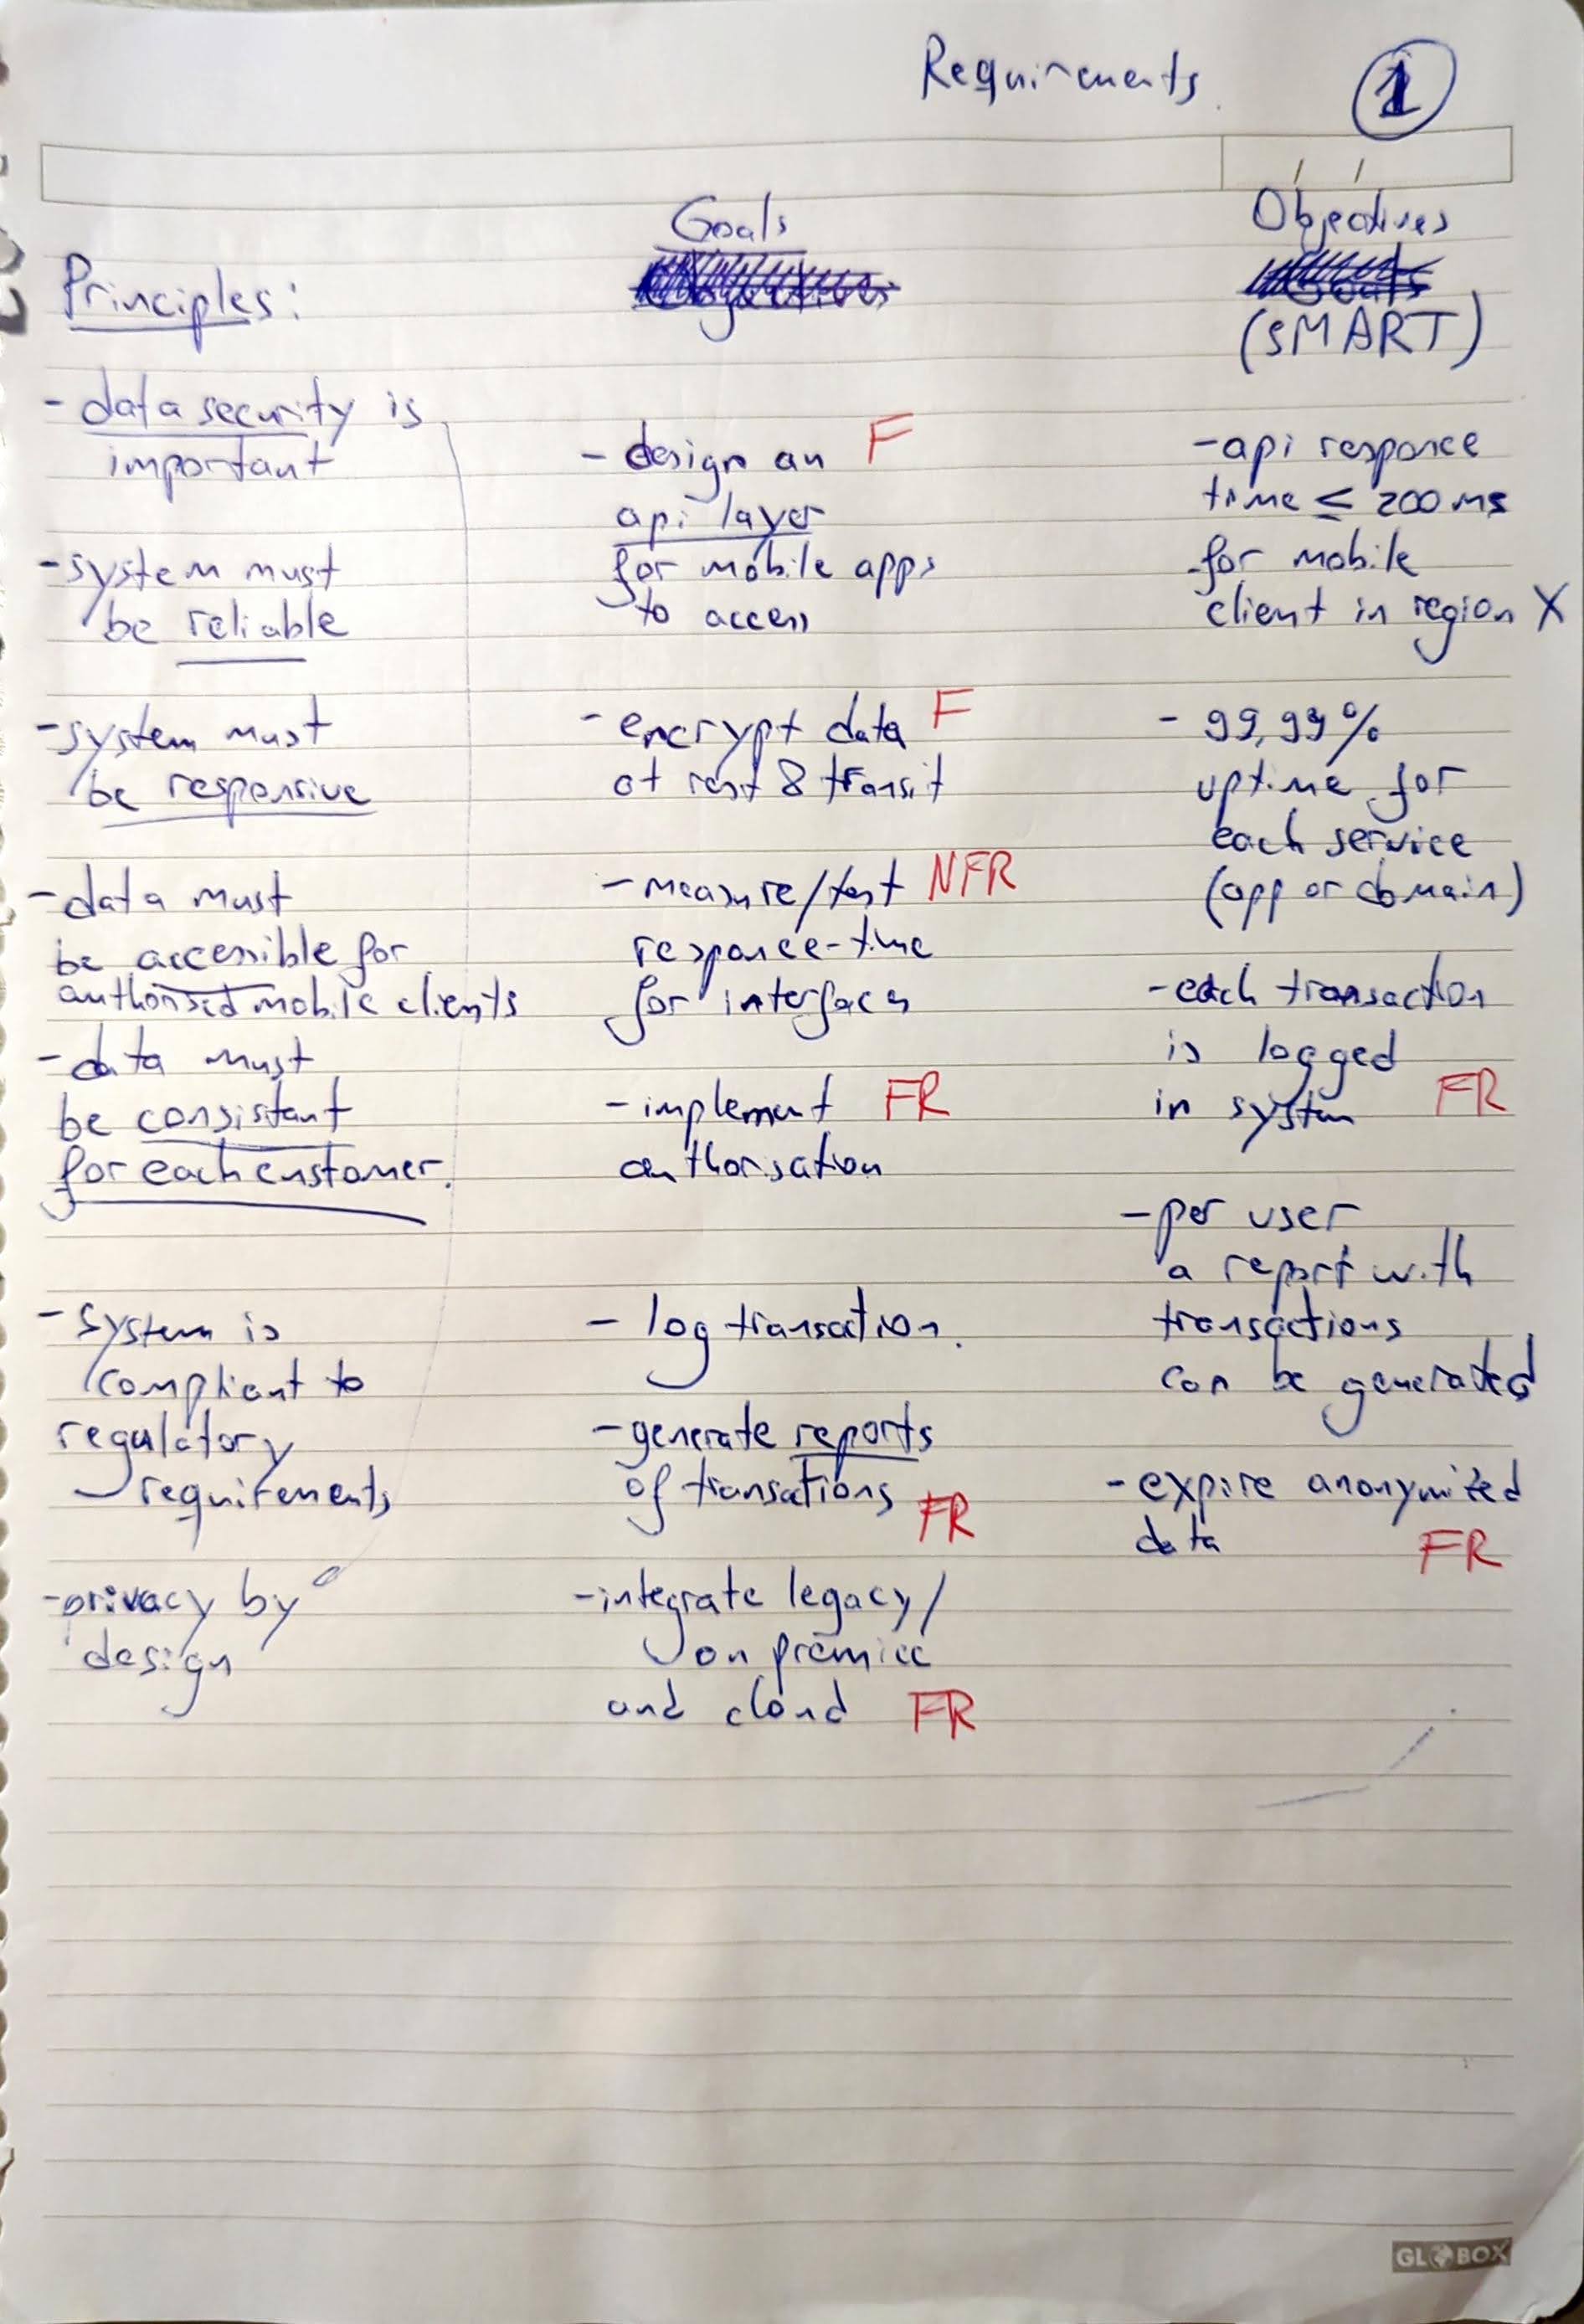 Requirements
1
Goals
Objectives
(SMART)
Principles:
- data security is
important
- system must
be reliable
- system must
be responsive
- data must
be accessible for
authorised mobile clients
- data must
be consistant
for each customer.
- System is
compliant to
regulatory
requirements
- privacy by
design
- design an F
api layer
for mobile apps
to access
- encrypt data F
at rest & transit
- measure/test NFR
responce-time
for interfaces
- implement FR
authorisation
- log transaction.
- generate reports
of transations FR
- integrate legacy/
on premice
and cloud FR
- api responce
time ≤ 200 ms
for mobile
client in region X
- 99,99%
uptime for
each service
(app or domain)
- each transaction
is logged
in system FR
- per user
a report with
transactions
can be generated
- expire anonymized
data FR
GLOBOX